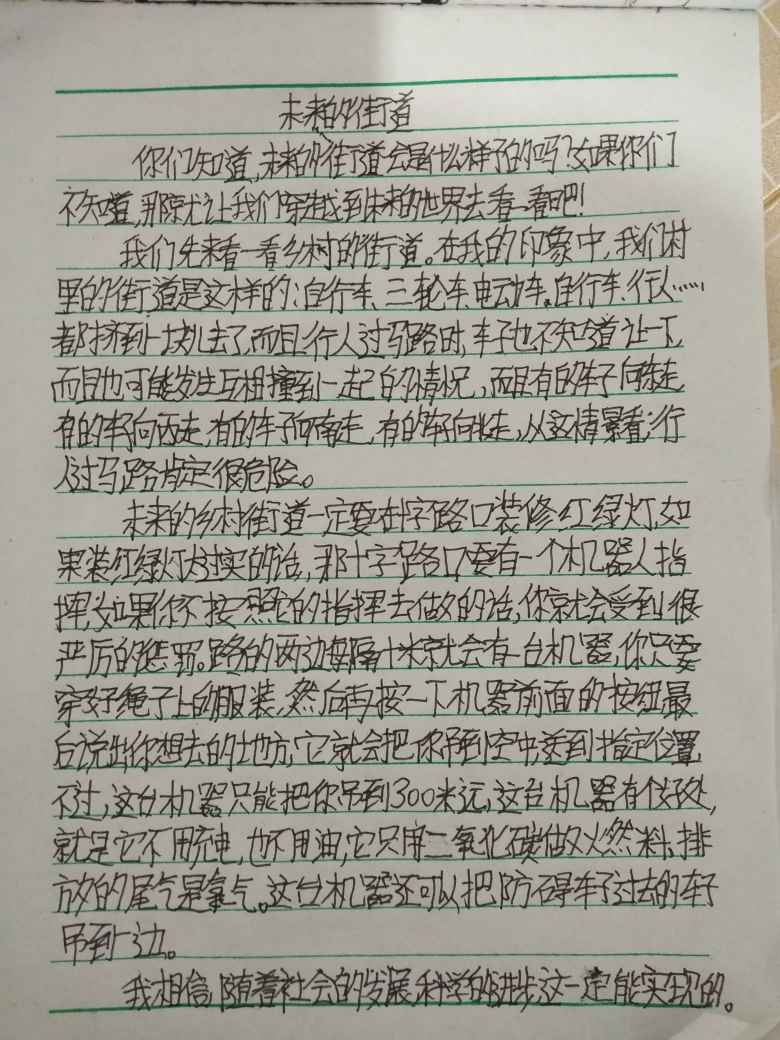 未来的街道
你们知道,未来的街道会是什么样子的吗?如果你们
不知道,那就让我们穿越到未来的世界去看一看吧!
我们先来看一看乡村的街道。在我的印象中,我们村
里的街道是这样的:自行车、三轮车、电动车、自行车、行人……
都挤到一块儿去了,而且行人过马路时,车子也不知道让一下,
而且也可能发生互相撞到一起的情况,而且有的车子向东走,
有的车子向西走,有的车子向南走,有的车子向北走,从这情景看,行
人过马路肯定很危险。
未来的乡村街道一定要在十字路口装修红绿灯,如
果装红绿灯太过实的话,那十字路口要有一个机器人指
挥,如果你不按照它的指挥去做的话,你就会受到很
严厉的惩罚。路的两边每隔十米就会有一台机器,你只要
穿好绳子上的服装,然后再按一下机器前面的按纽最
后说出你想去的地方,它就会把你吊到空中送到指定位置,
不过,这台机器只能把你吊到300米远,这台机器有个好处,
就是它不用充电,也不用油,它只用二氧化碳做火然料,排
放的尾气是氧气。这台机器还可以把防碍车子过去的车子
吊到一边。
我相信,随着社会的发展,科学的进步,这一定能实现的。